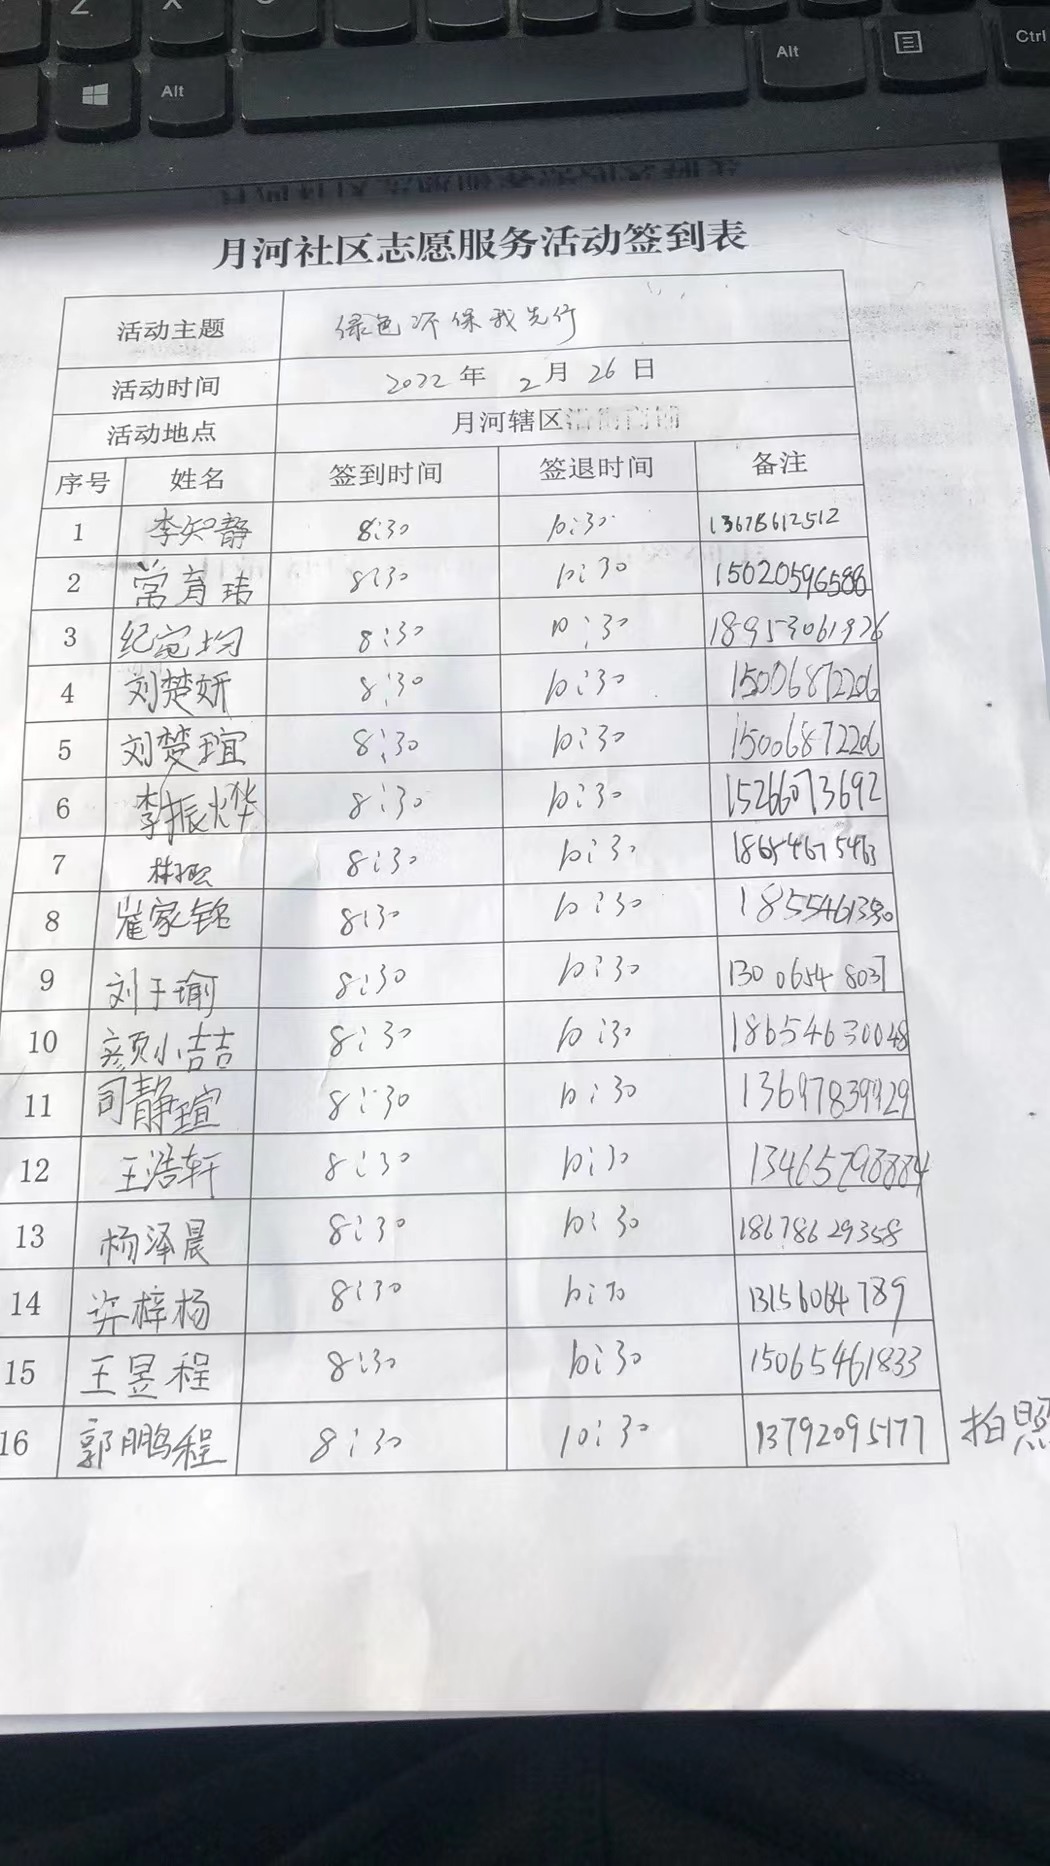 Z X
Alt Alt Ctrl
月河社区志愿服务活动签到表
活动主题 绿色环保我先行
活动时间 2022年 2月 26日
活动地点 月河辖区
序号 姓名 签到时间 签退时间 备注
1 李知静 8:30 10:30 13678612512
2 常育玮 8:30 10:30 15020596588
3 8:30 10:30 18953061926
4 刘楚妍 8:30 10:30 15006872206
5 刘楚瑄 8:30 10:30 15006872206
6 李振烨 8:30 10:30 15266073692
7 8:30 10:30 18654675463
8 崔家铭 8:30 10:30
9 刘于瑜 8:30 10:30 13006548037
10 颜小喆 8:30 10:30 18654630048
11 司静瑄 8:30 10:30
12 王浩轩 8:30 10:30 13465798884
13 杨泽晨 8:30 10:30 18678629358
14 许梓杨 8:30 10:30 13156064789
15 王昱程 8:30 10:30 15065461833
16 郭鹏程 8:30 10:30 13792095177 拍照